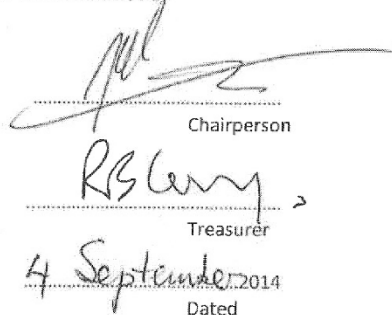 Chairperson
Treasurer
4 September 2014
Dated